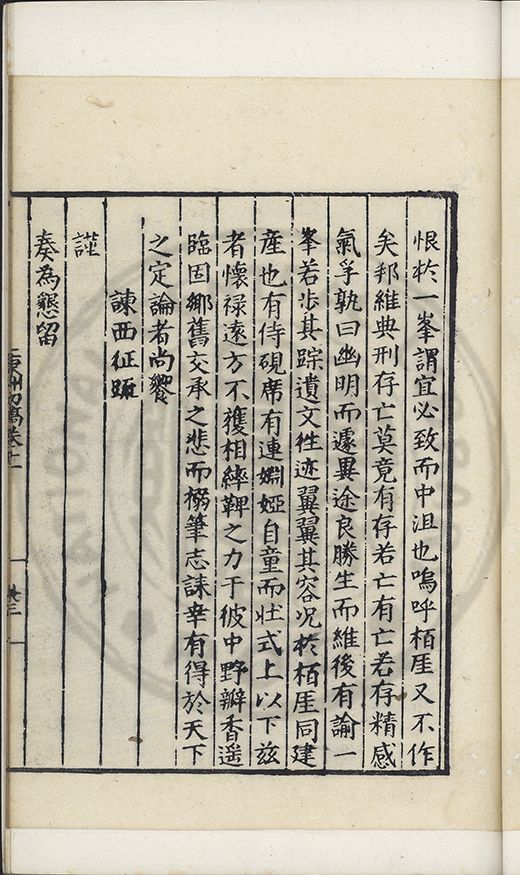 恨於一峯謂宜必致而中沮也嗚呼栢厓又不作
矣邦維典刑存亡莫竟有存若亡有亡若存精感
氣孚孰曰幽明而遽異途良勝生而維後有諭一
峯若步其踪遺文徃迹翼翼其容况於栢厓同建
産也有侍硯席有連姻婭自童而壯式上以下兹
者懷禄逺方不獲相綍鞞之力于彼中野瓣香遥
臨因鄉舊交承之悲而搦筆志誄幸有得於天下
之定論者尚饗
諫西征疏
謹
奏為懇留
初藁卷十一